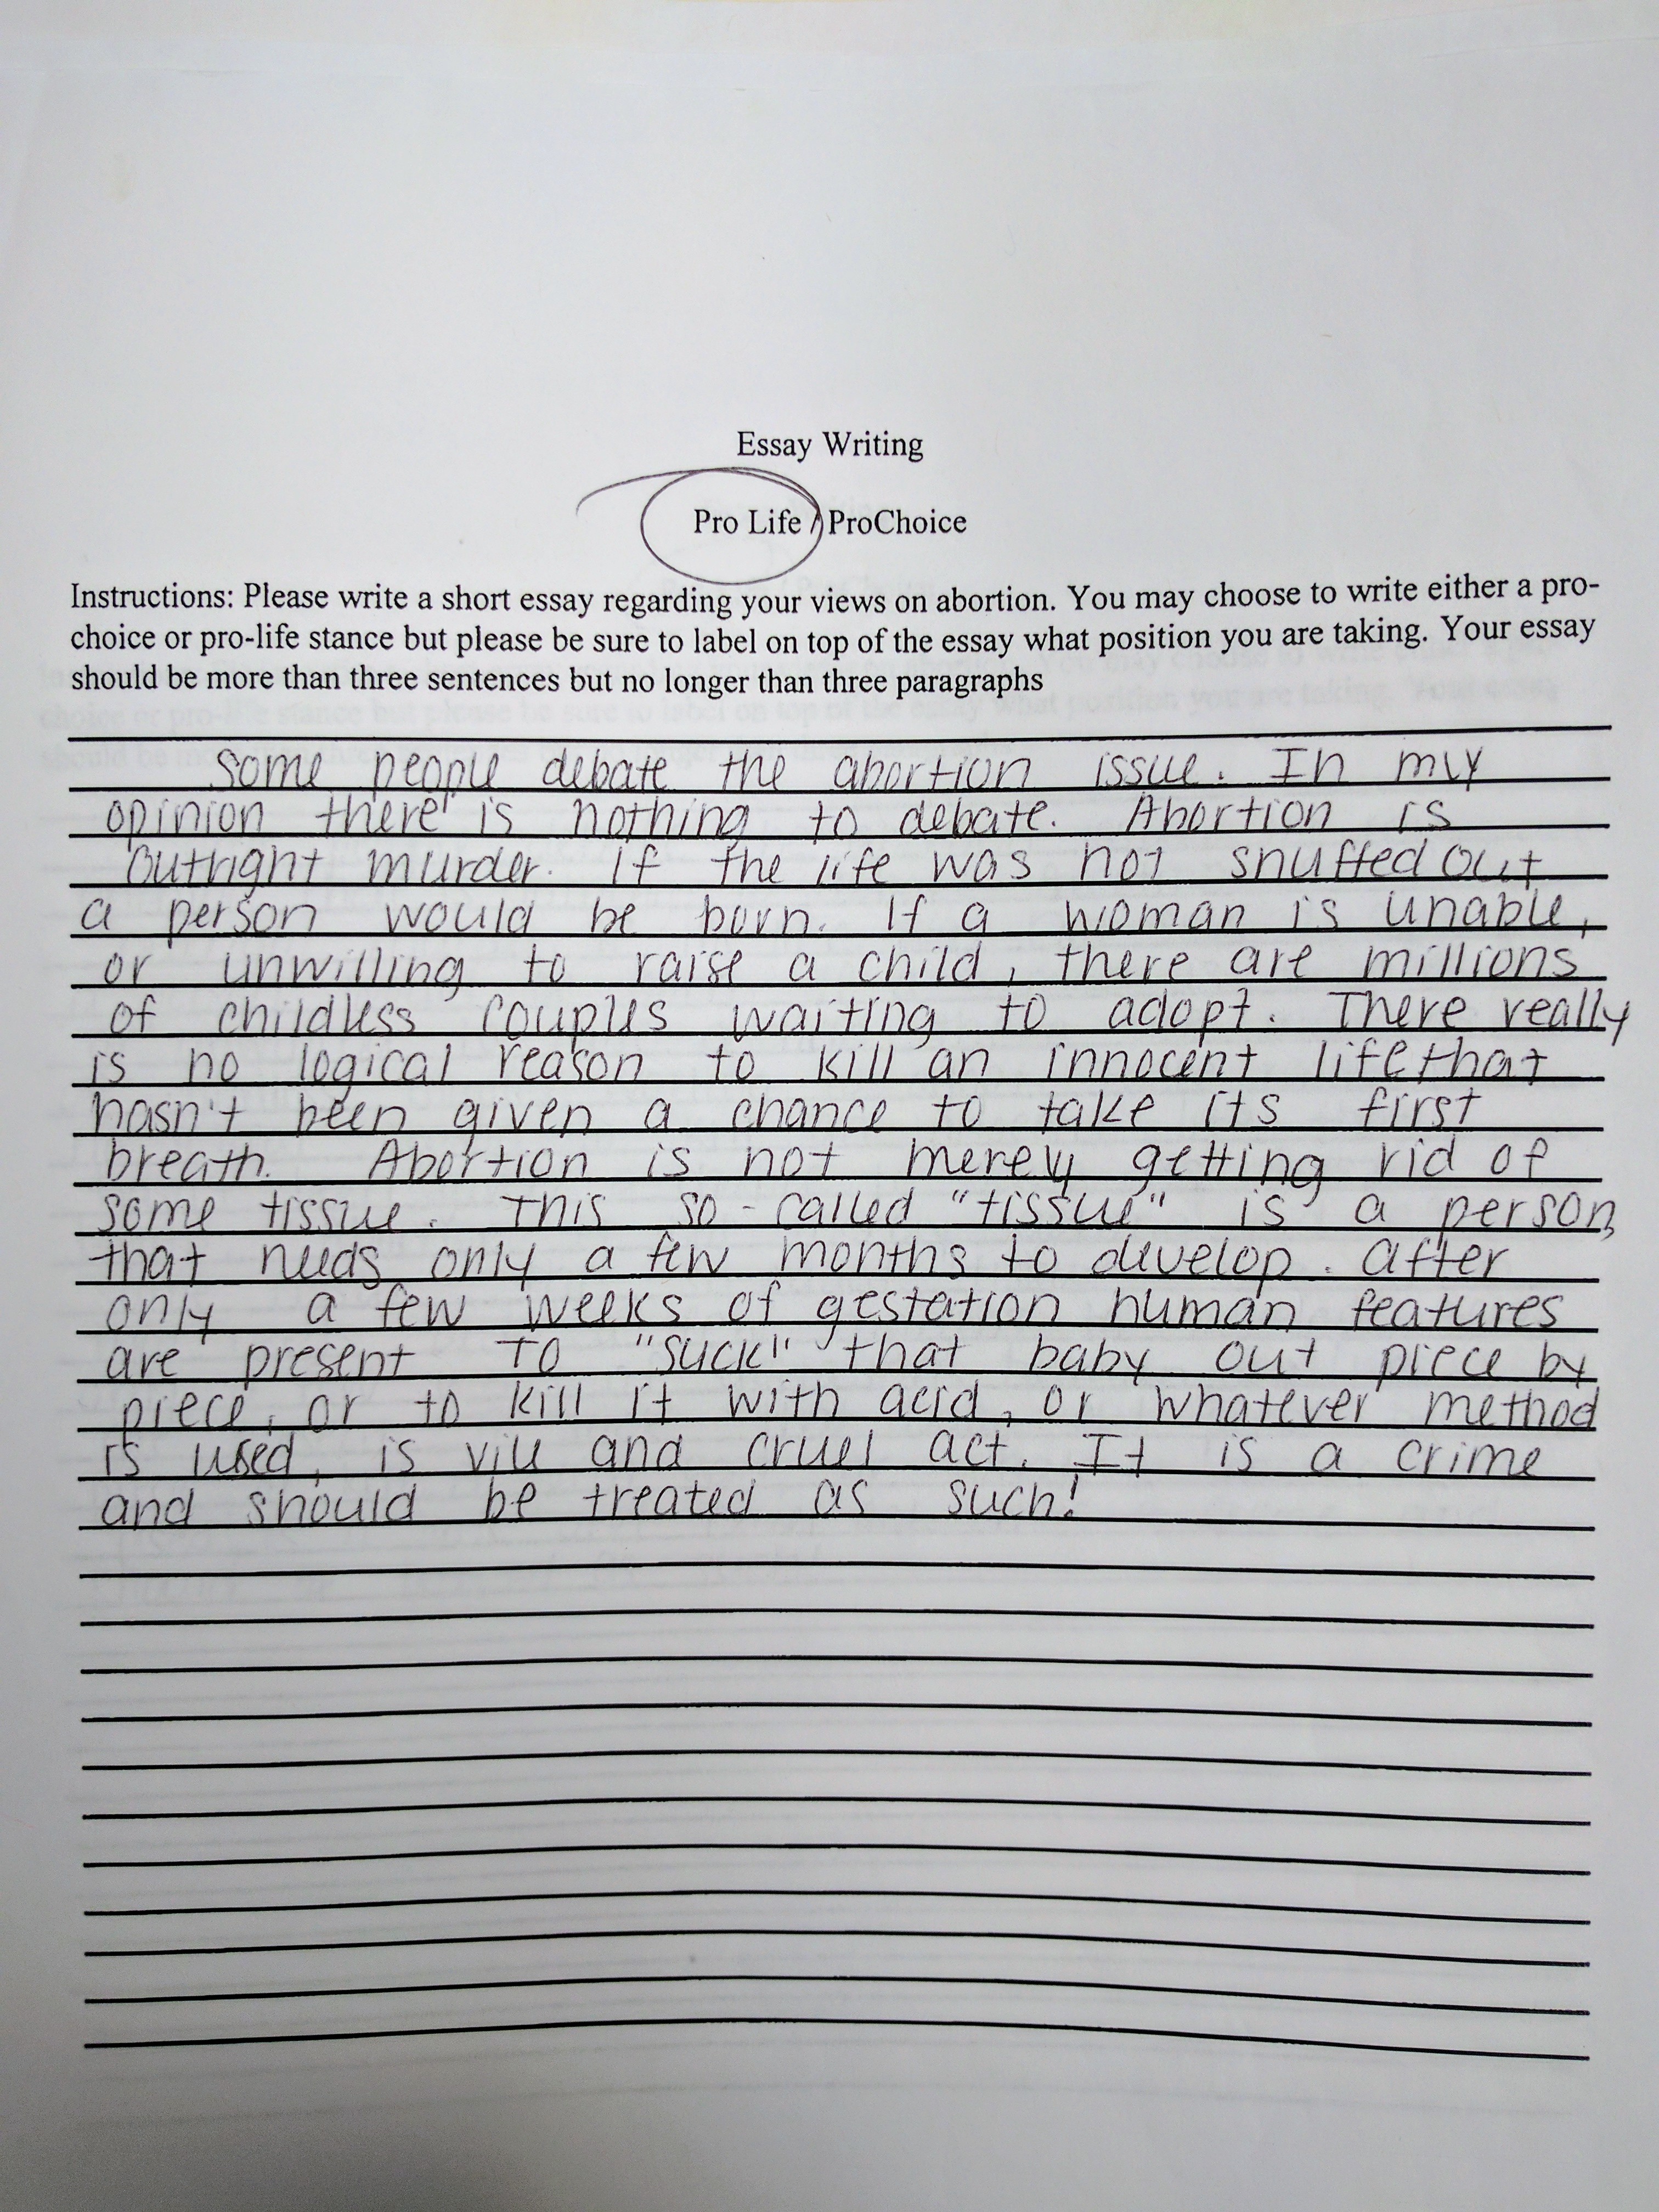 Essay Writing
Pro Life / ProChoice
Instructions: Please write a short essay regarding your views on abortion. You may choose to write either a pro-
choice or pro-life stance but please be sure to label on top of the essay what position you are taking. Your essay
should be more than three sentences but no longer than three paragraphs
Some people debate the abortion issue. In my
opinion there is nothing to debate. Abortion is
outright murder. If the life was not snuffed out
a person would be born. If a woman is unable,
or unwilling to raise a child, there are millions
of childless couples waiting to adopt. There really
is no logical reason to kill an innocent life that
hasn't been given a chance to take its first
breath. Abortion is not merely getting rid of
some tissue. This so-called "tissue" is a person,
that needs only a few months to develop. After
only a few weeks of gestation human features
are present To "suck" that baby out piece by
piece, or to kill it with acid, or whatever method
is used, is vile and cruel act. It is a crime
and should be treated as such!